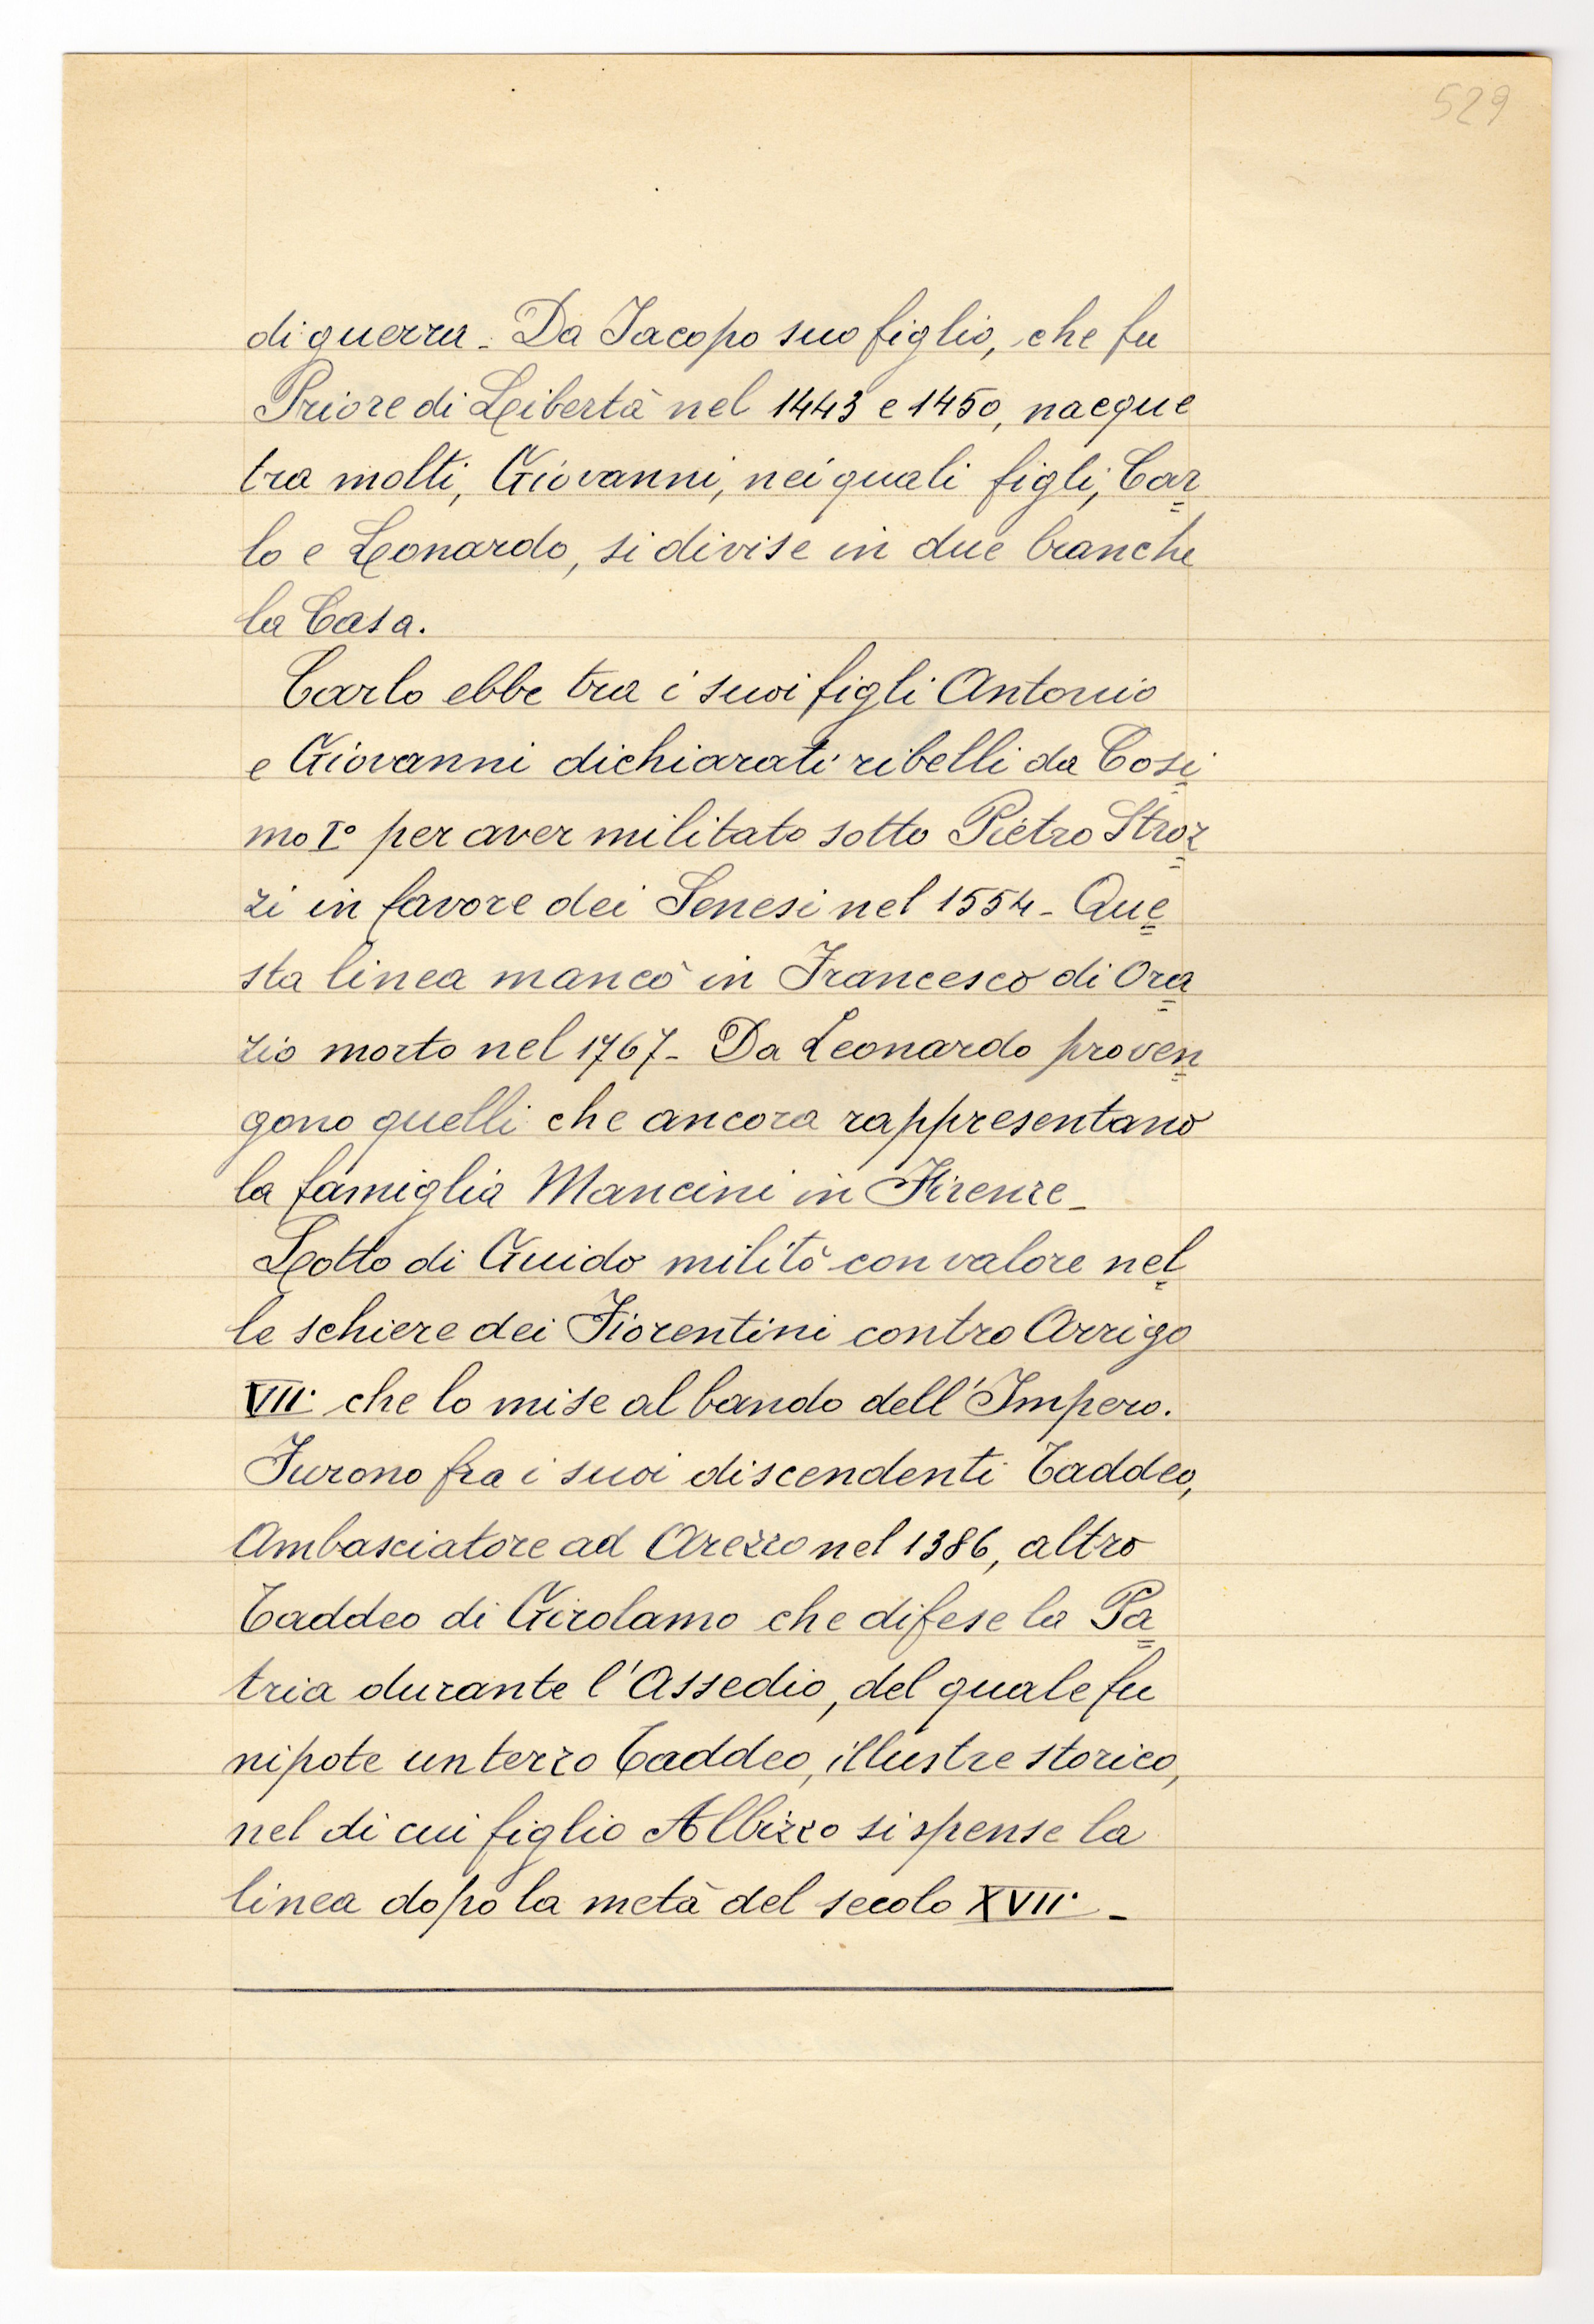 529
di guerra. Da Jacopo suo figlio, che fu
Priore di Libertà nel 1443 e 1450, nacque
tra molti, Giovanni, nei quali figli, Car
lo e Leonardo, si divise in due branche
la Casa.
Carlo ebbe tra i suoi figli Antonio
e Giovanni dichiarati ribelli da Cosi
mo I° per aver militato sotto Pietro Stroz
zi in favore dei Senesi nel 1554 - Que
sta linea mancò in Francesco di Ora
zio morto nel 1767 - Da Leonardo proven
gono quelli che ancora rappresentano
la famiglia Mancini in Firenze -
Lotto di Guido militò con valore nel
le schiere dei Fiorentini contro Arrigo
VII. che lo mise al bando dell'Impero.
Furono fra i suoi discendenti Taddeo,
Ambasciatore ad Arezzo nel 1386, altro
Taddeo di Girolamo che difese la Pa
tria durante l'Assedio, del quale fu
nipote un terzo Taddeo, illustre storico,
nel di cui figlio Albizzo si spense la
linea dopo la metà del secolo XVII. -